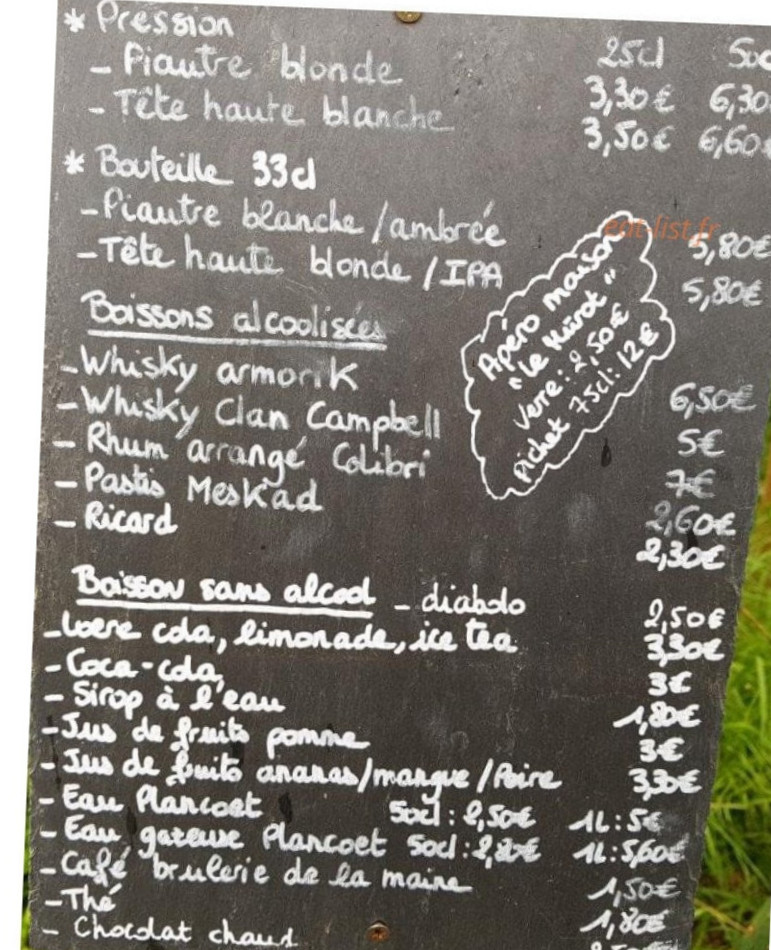 * Pression 25cl 50c
- Piautre blonde 3,30€ 6,30
- Tête haute blanche 3,50€ 6,60€
* Bouteille 33cl
- Piautre blanche / ambrée 5,80€
- Tête haute blonde / IPA 5,80€
eat-list.fr
Apéro maison
"Le Kürot"
verre: 2,50€
pichet 75cl: 12€
Boissons alcoolisées
- Whisky armorik 6,50€
- Whisky Clan Campbell 5€
- Rhum arrangé Colibri 7€
- Pastis Meskad 2,60€
- Ricard 2,30€
Boisson sans alcool - diabolo 2,50€
- Loere cola, limonade, ice tea 3,30€
- Coca-cola, 3€
- Sirop à l'eau 1,80€
- Jus de fruits pomme 3€
- Jus de fruits ananas/mangue/Poire 3,30€
- Eau Plancoet 50cl: 2,50€ 1L: 5€
- Eau gazeuse Plancoet 50cl: 2,80€ 1L: 5,60€
- Café brulerie de la maine 1,50€
- Thé 1,80€
- Chocolat chaud